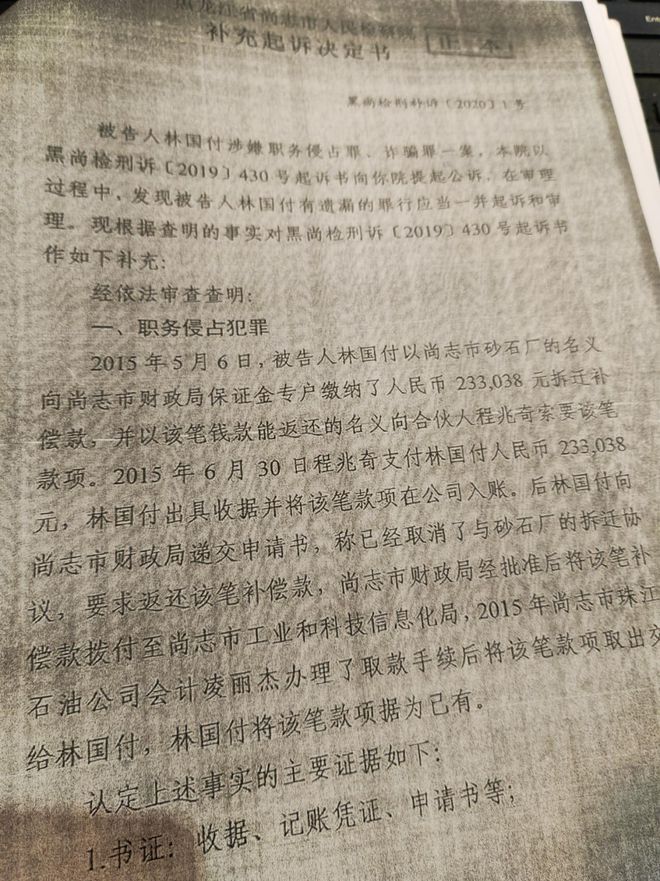 黑龙江省尚志市人民检察院
补充起诉决定书
正本
黑尚检刑补诉〔2020〕1号
被告人林国付涉嫌职务侵占罪、诈骗罪一案，本院以
黑尚检刑诉〔2019〕430号起诉书向你院提起公诉，在审理
过程中，发现被告人林国付有遗漏的罪行应当一并起诉和审
理。现根据查明的事实对黑尚检刑诉〔2019〕430号起诉书
作如下补充：
经依法审查查明：
一、职务侵占犯罪
2015年5月6日，被告人林国付以尚志市砂石厂的名义
向尚志市财政局保证金专户缴纳了人民币233,038元拆迁补
偿款，并以该笔钱款能返还的名义向合伙人程兆奇索要该笔
款项。2015年6月30日程兆奇支付林国付人民币233,038
元，林国付出具收据并将该笔款项在公司入账。后林国付向
尚志市财政局递交申请书，称已经取消了与砂石厂的拆迁协
议，要求返还该笔补偿款，尚志市财政局经批准后将该笔补
偿款拨付至尚志市工业和科技信息化局，2015年尚志市珠江
石油公司会计凌丽杰办理了取款手续后将该笔款项取出交
给林国付，林国付将该笔款项据为已有。
认定上述事实的主要证据如下：
1.书证：收据、记账凭证、申请书等；
Enter